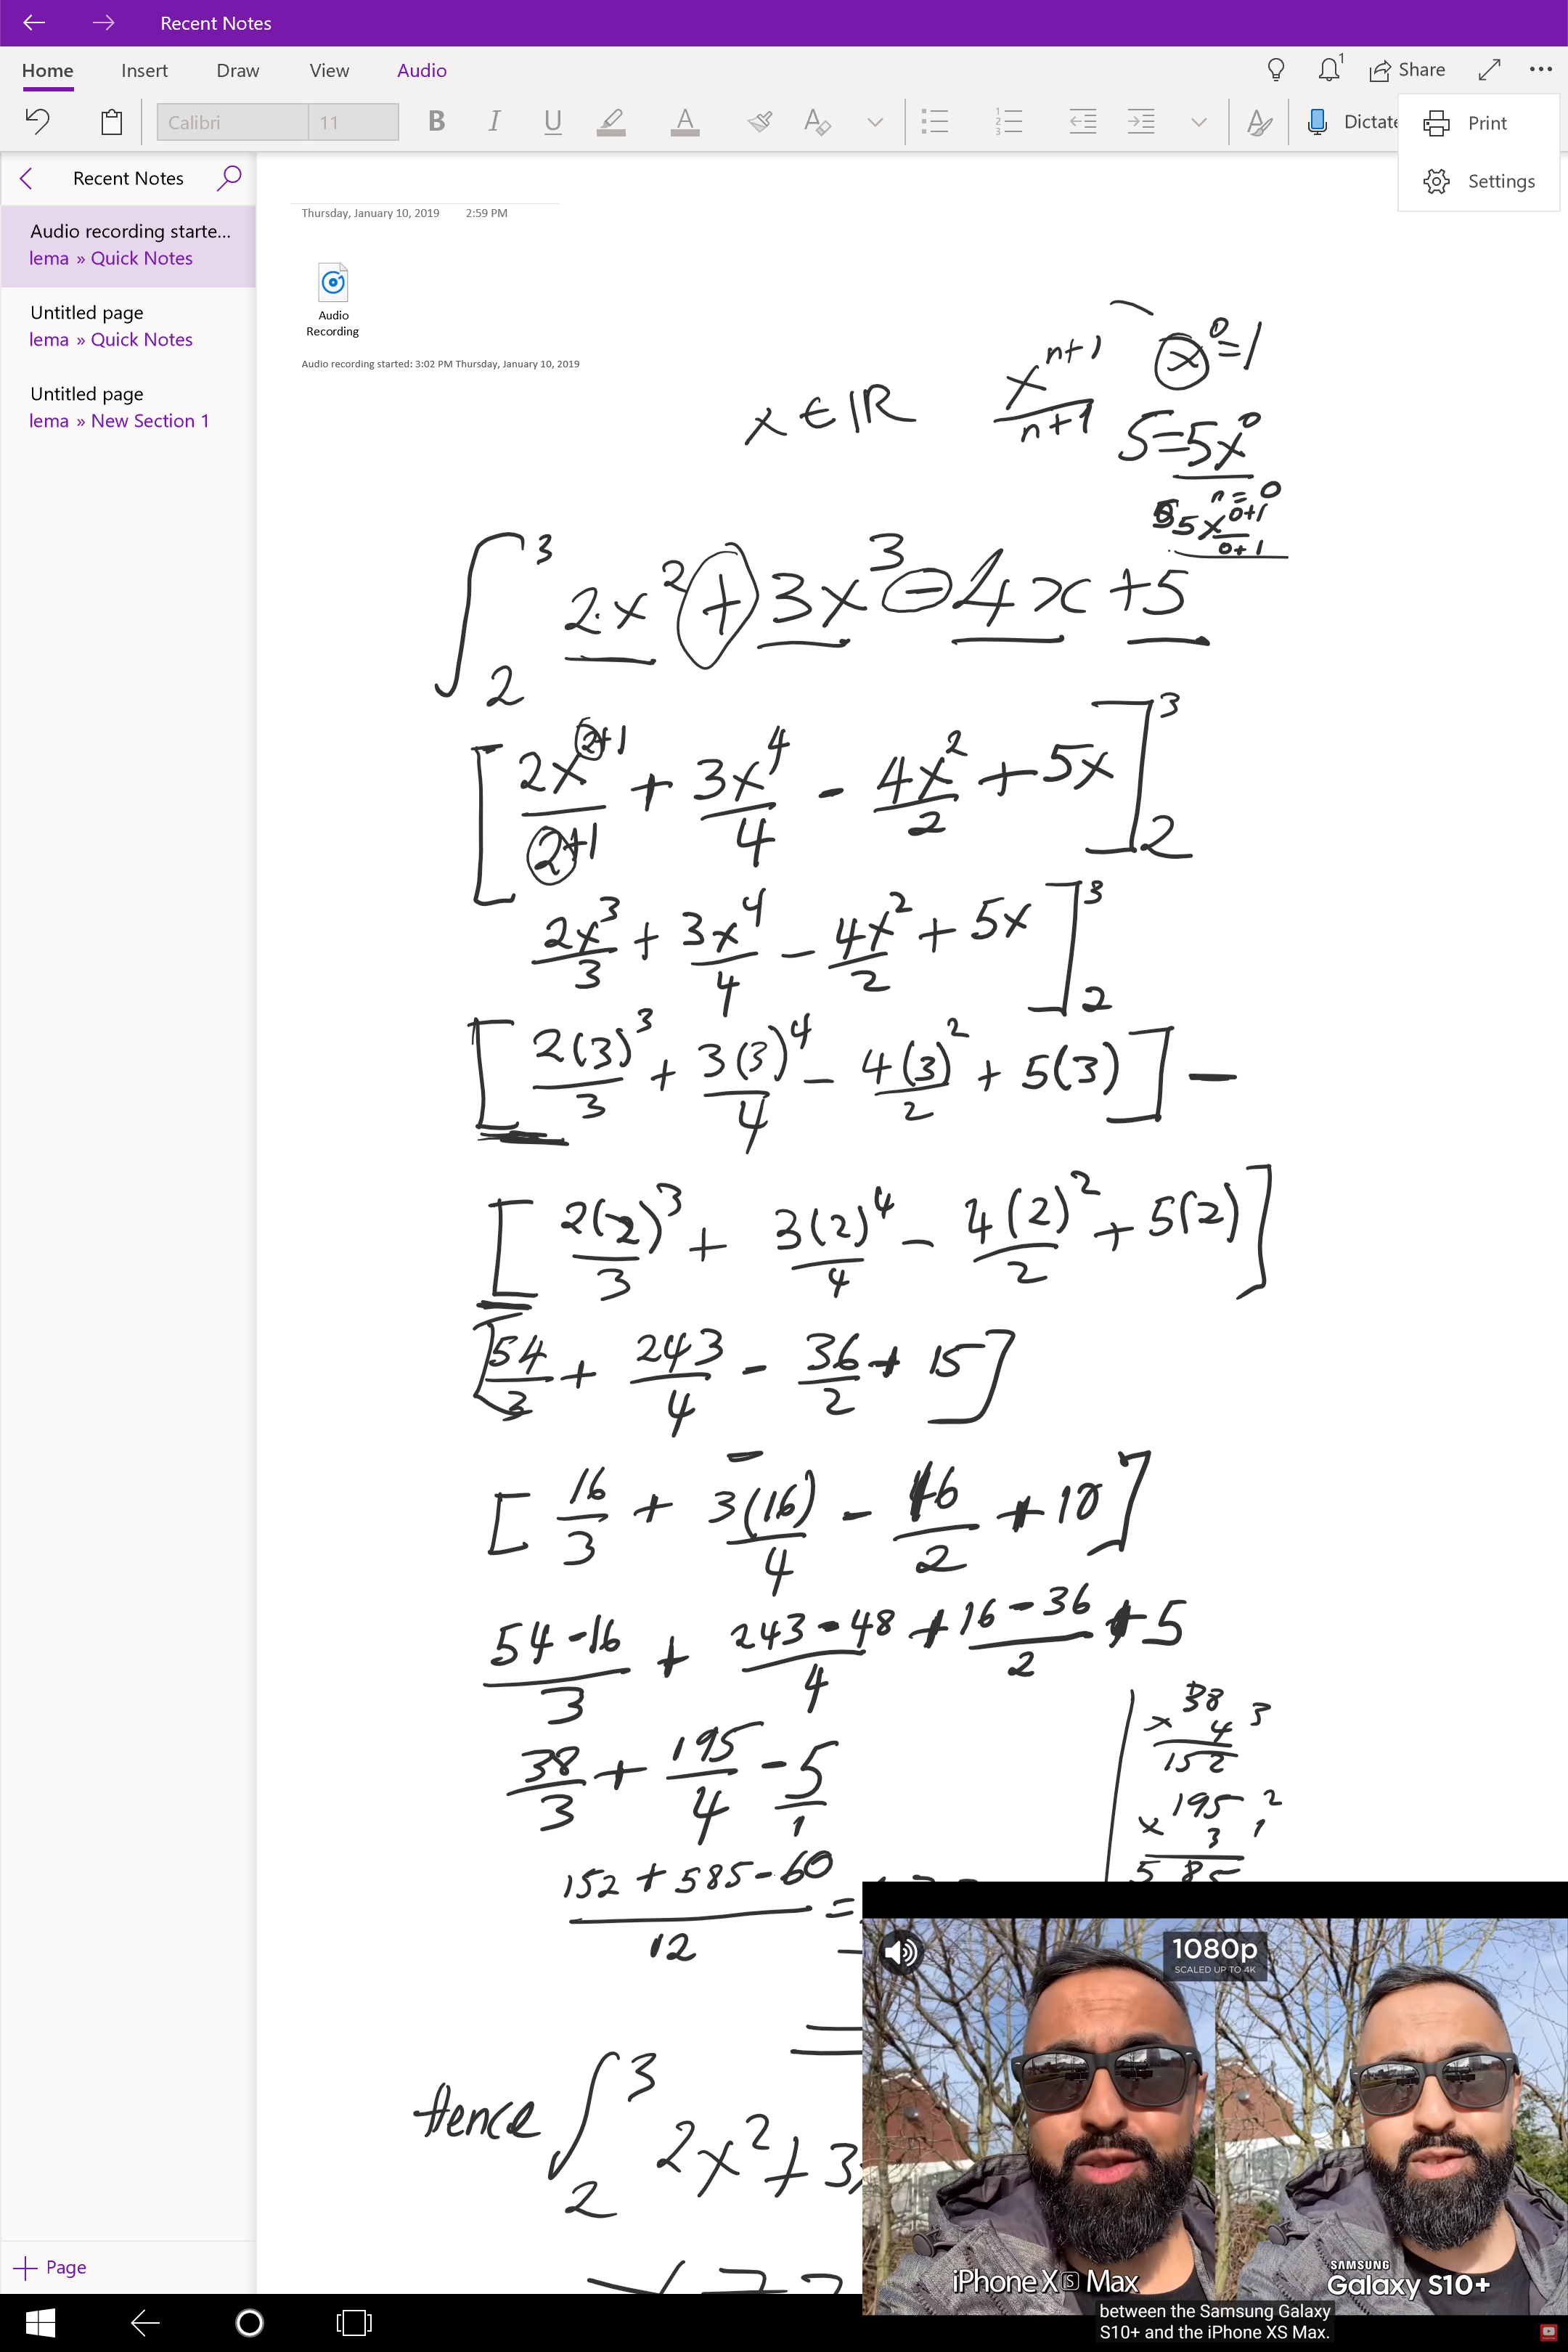 Recent Notes
Home Insert Draw View Audio
1
Share
Calibri 11 B I U A A Dictate
Print
Settings
Recent Notes
Audio recording starte...
lema » Quick Notes
Untitled page
lema » Quick Notes
Untitled page
lema » New Section 1
Page
Thursday, January 10, 2019 2:59 PM
Audio
Recording
Audio recording started: 3:02 PM Thursday, January 10, 2019
x ∈ ℝ
x^(n+1)/(n+1)
x^0 = 1
5 = 5x^0
n = 0
5x^(0+1)/(0+1)
∫_2^3 2x^2 + 3x^3 - 4x + 5
[2x^(2+1)/(2+1) + 3x^4/4 - 4x^2/2 + 5x]_2^3
2x^3/3 + 3x^4/4 - 4x^2/2 + 5x]_2^3
[2(3)^3/3 + 3(3)^4/4 - 4(3)^2/2 + 5(3)] -
[2(2)^3/3 + 3(2)^4/4 - 4(2)^2/2 + 5(2)]
[54/3 + 243/4 - 36/2 + 15]
-
[16/3 + 3(16)/4 - 16/2 + 10]
(54-16)/3 + (243-48)/4 + (16-36)/2 + 5
38/3 + 195/4 - 5/1
38 3
× 4
152
195 2
× 3 1
585
(152 + 585 - 60)/12 =
Hence ∫_2^3 2x^2 + 3x
1080p
SCALED UP TO 4K
iPhone XS Max
SAMSUNG
Galaxy S10+
between the Samsung Galaxy
S10+ and the iPhone XS Max.